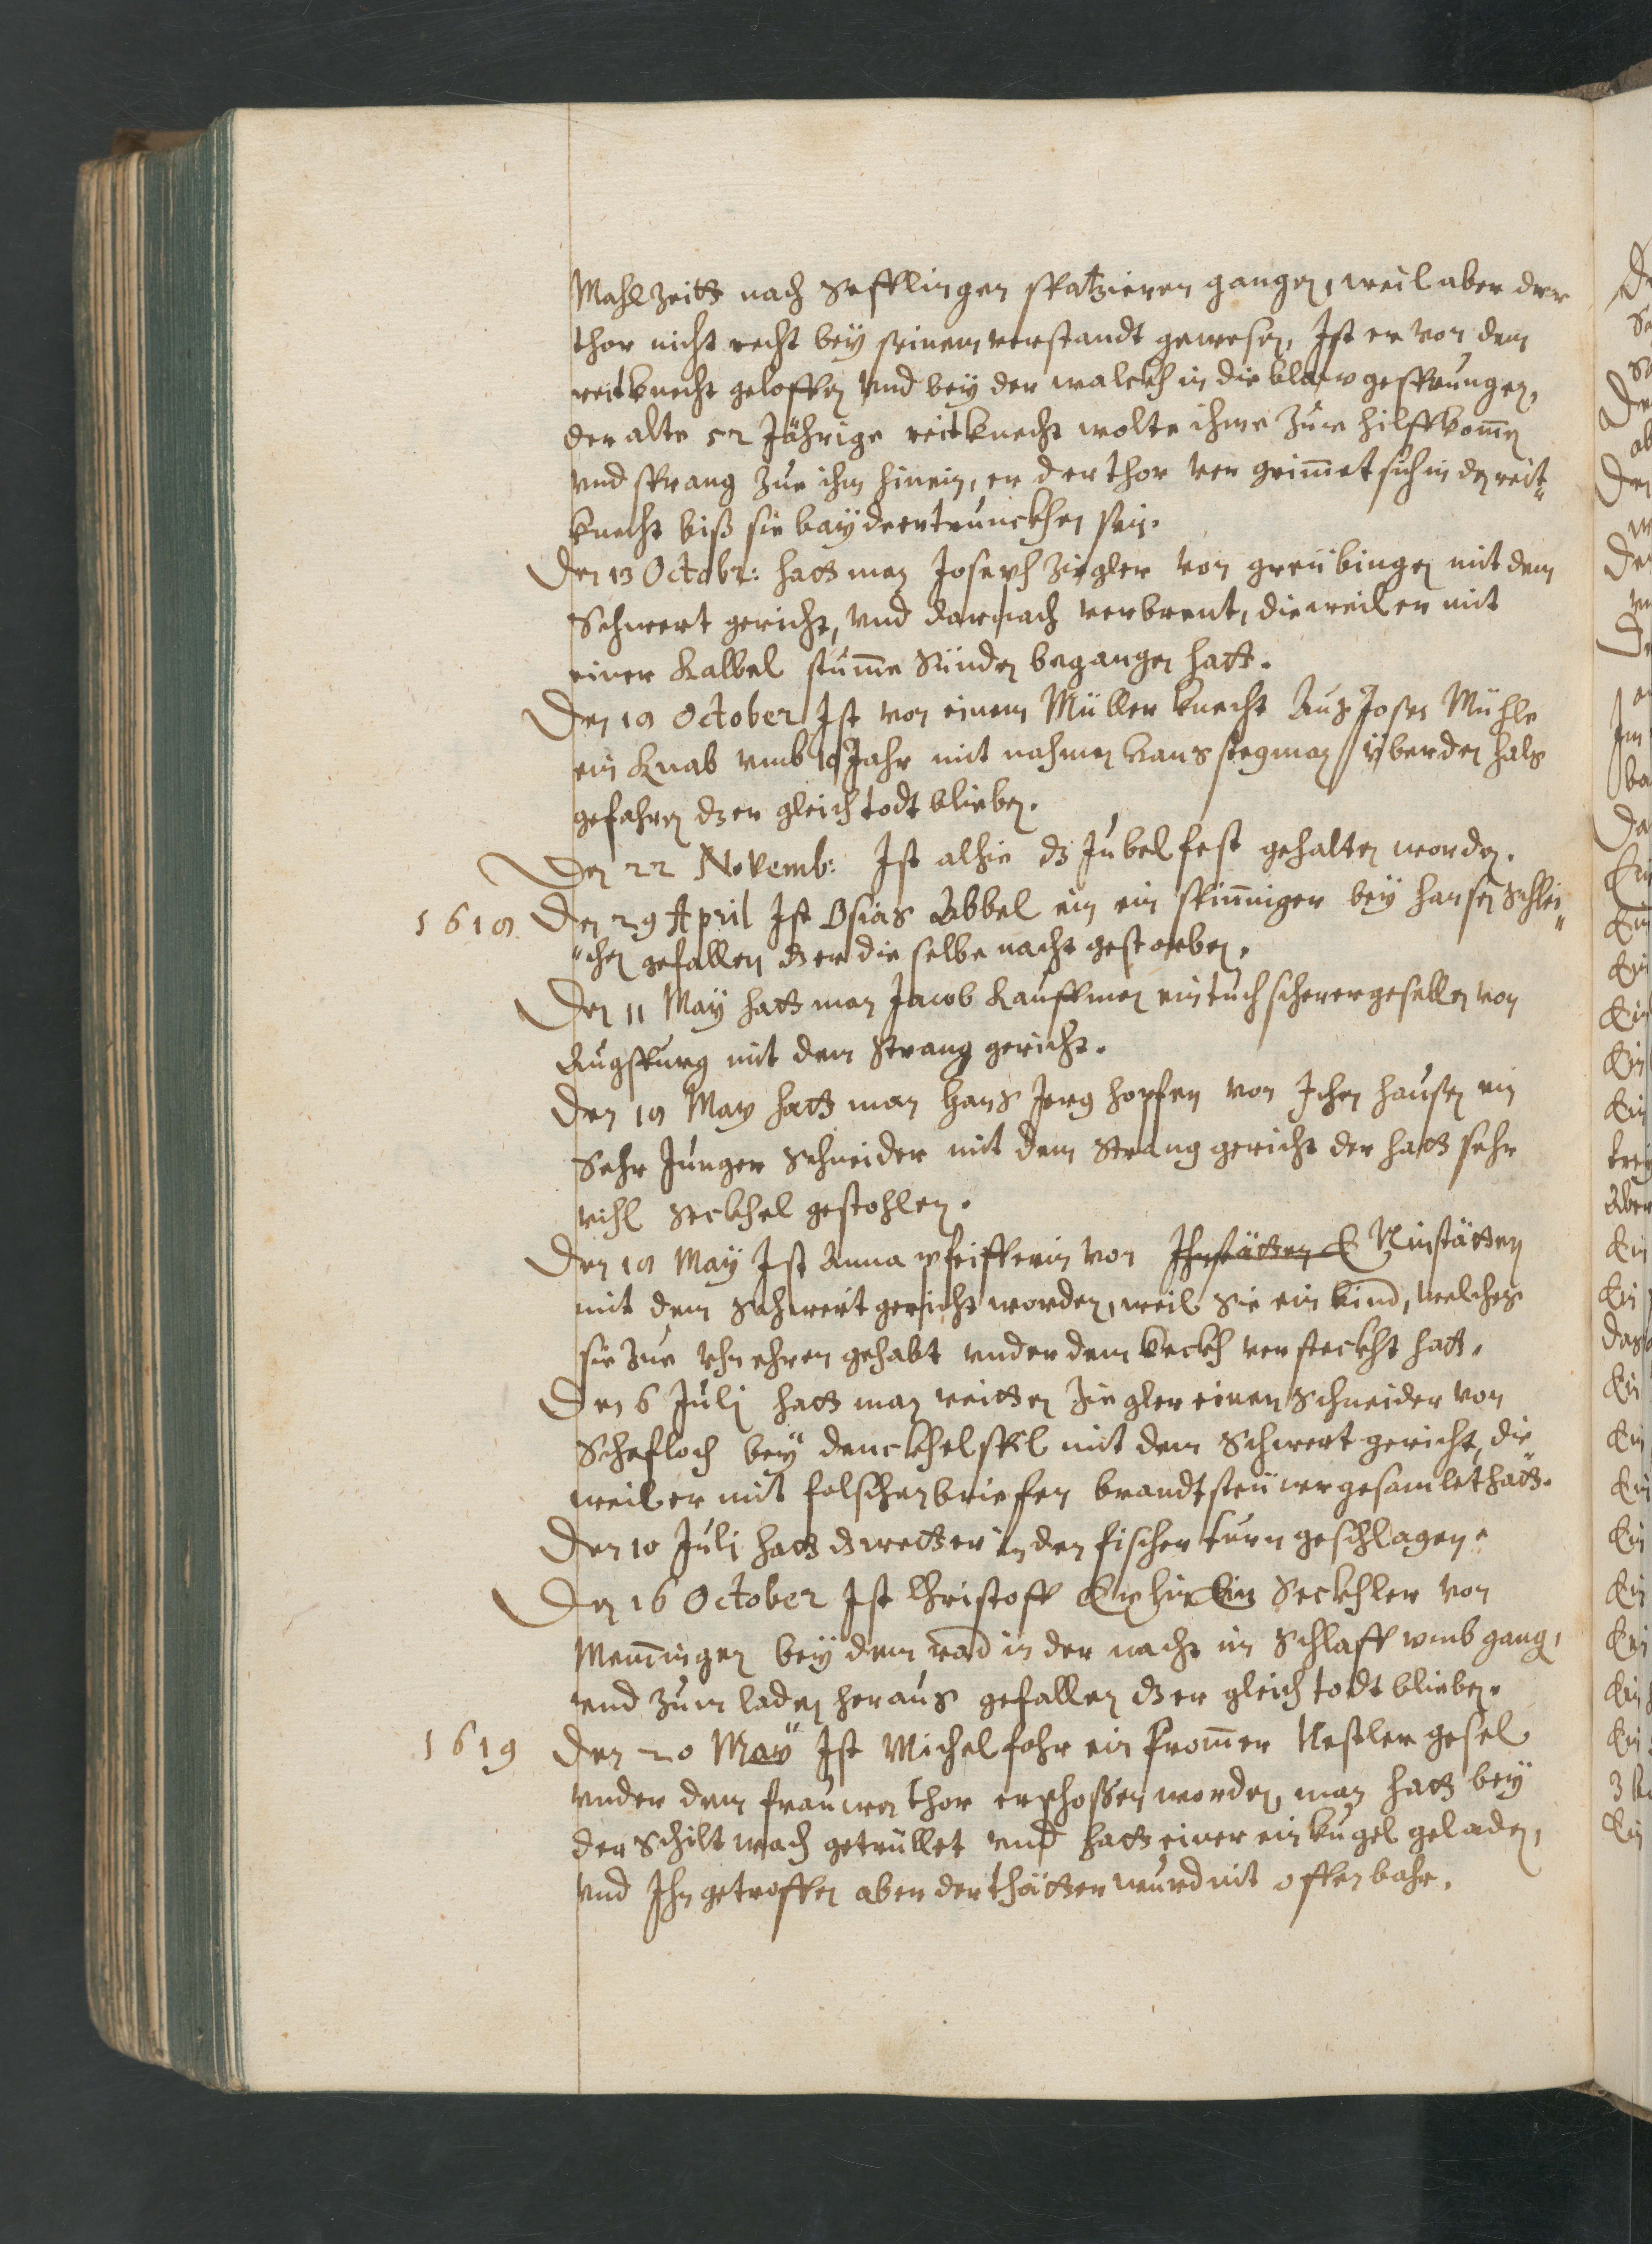 Mahlzeitt nach Sefflingen spatzieren gangen, weil aber der
thor nicht recht bey seinem verstandt gewesen, Ist er von dem
reitknecht geloffen vnd bey der walckh in die blaw gesprungen,
der alte 52 Jährige reitknecht wolte ihme zue hilff kom̄en
vnd sprang zue ihm hinein, er der thor ver grim̄et sich in den reit„
knecht biß sie bayde ertrunckhen sein.
Den 13 Octobr: hatt man Joseph Ziegler von greübingen mit dem
Schwert gericht, vnd darnach verbrent, dieweil er mit
einer Kalbel stum̄e Sünden begangen hatt.
Den 18 October Ist von einem Müller knecht Auß Josen Mühle
ein Knab vmb 10 Jahr mit nahmen hans stegman überden hals
gefahren dz er gleich todt blieben.
Den 22 Novemb: Ist alhie dz Jubelfest gehalten worden.
1618 Den 29 April Ist Osias Abbel ein bey hansen Schlei„
„chen gefallen dz er die selbe nacht gestorben.
Den 11 May hatt man Jacob Kauffmen ein tuch scherergesellen von
Augspurg mit dem Strang gericht.
Den 18 May hatt man Hans Jerg hopfen von Ichen hausen ein
Sehr Junger Schneider mit dem Strang gericht der hatt sehr
vihl Seckhel gestohlen.
Den 18 May Ist Anna pfeifferin von Ninstätten
mit dem Schwert gericht worden, weil Sie ein kind, welches
sie zue Vhn ehren gehabt vnder dem versteckht hatt.
Den 6 Julj hatt man Ziegler einen Schneider von
Schefloch bey denckhelspil mit dem Schwert gericht, die
weil er mit falschen briefen brandtsteüwer gesamlet hatt.
Den 10 Julj hatt dz wetter in den fischer turn geschlagen.
Den 16 October Ist Christoff Ein Seckhler von
Mem̄ingen bey dem rad in der nacht im Schlaff vmb gang,
vnd zum laden heraus gefallen dz er gleich todt blieben.
1619 Den 20 May Ist Michel fohr ein from̄er Nestler gesel
vnder dem frauwen thor erschossen worden, man hatt bey
der Schiltwach getrüllet vnd hatt einer ein kugel geladen,
vnd Ihn getroffen aber der thätter wurd nit offenbahr.